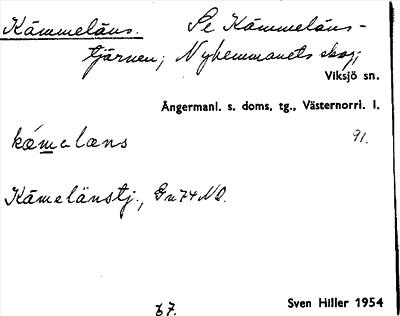 Kämmeläns. Se Kämmeläns-
tjärnen; Nyhemmanets skog;
Viksjö sn.
Ångermanl. s. doms. tg., Västernorrl. l.
kǽmelæns 91.
Kämelänstj., Gn74 NO.
67. Sven Hiller 1954